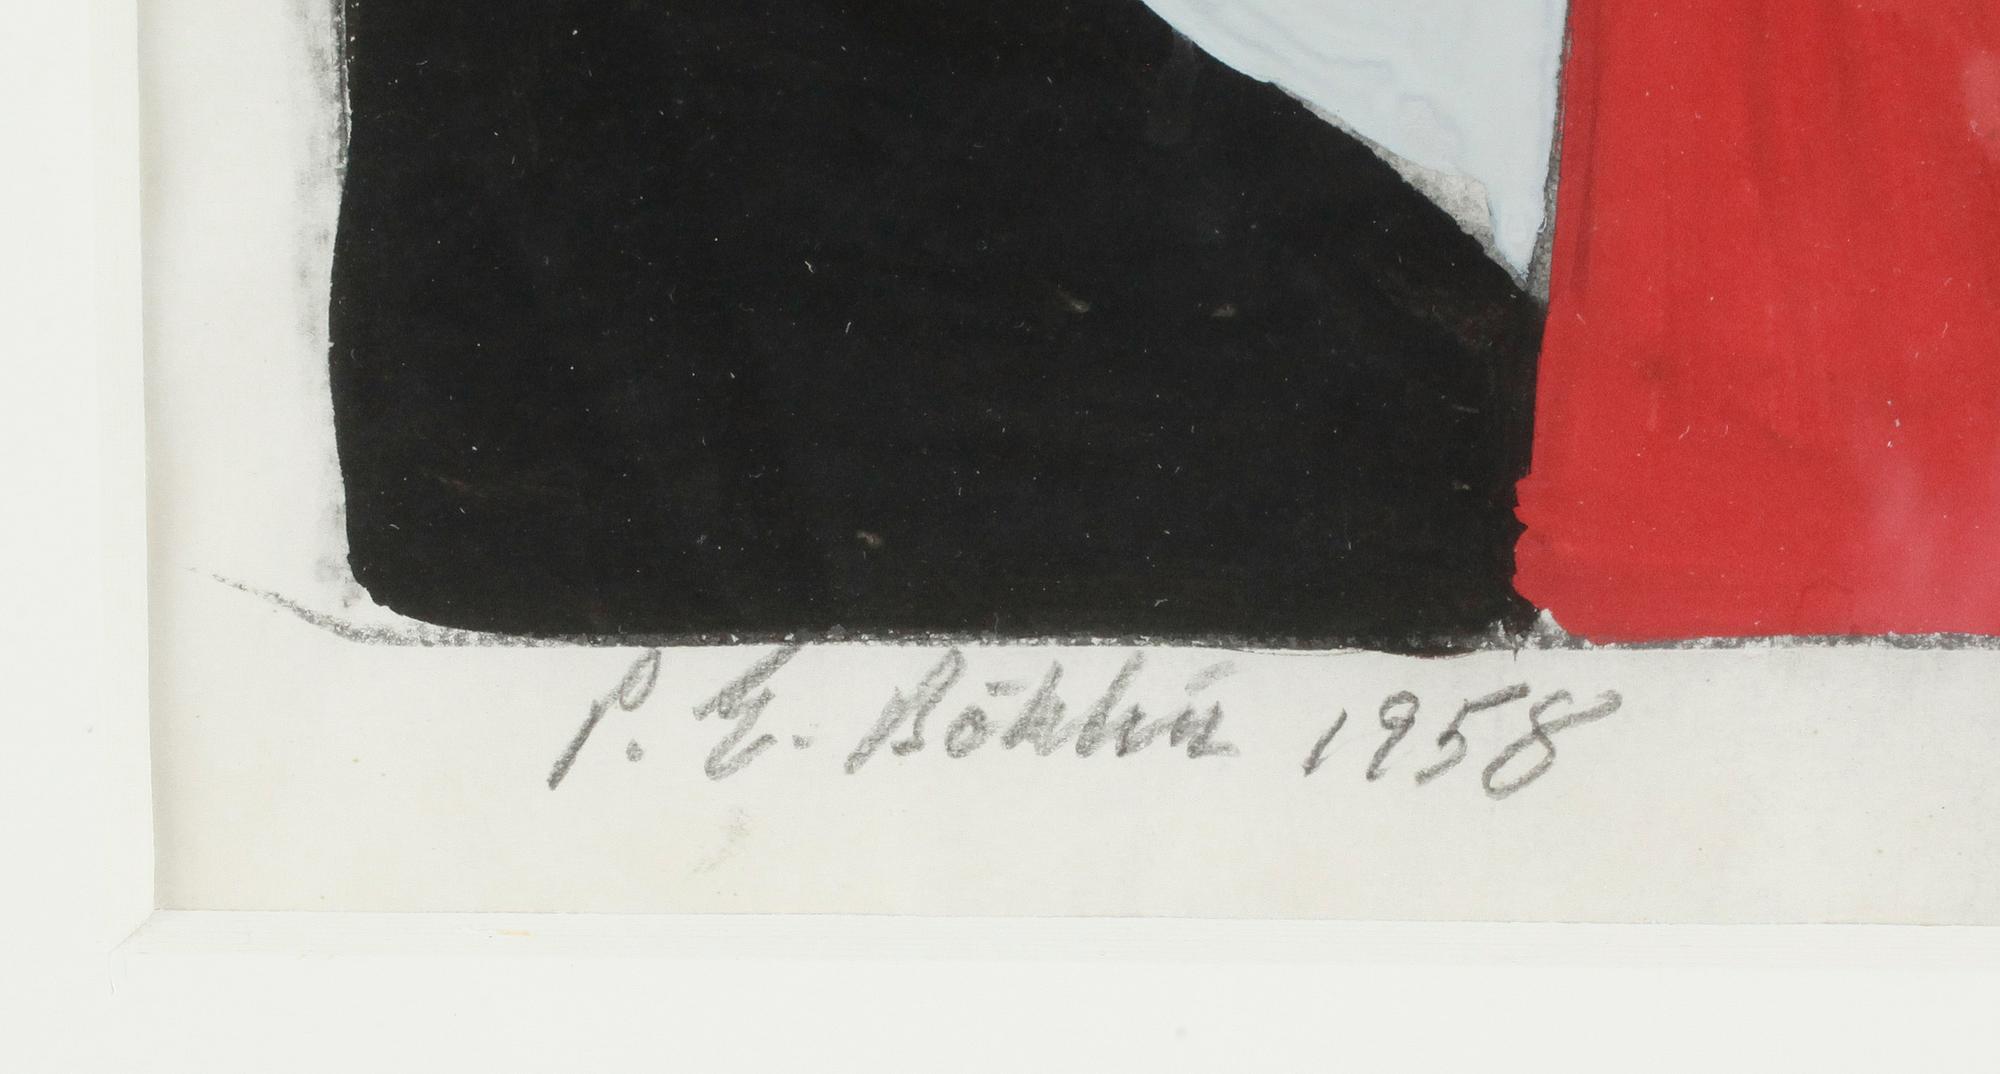 P. G. Böhlin 1958